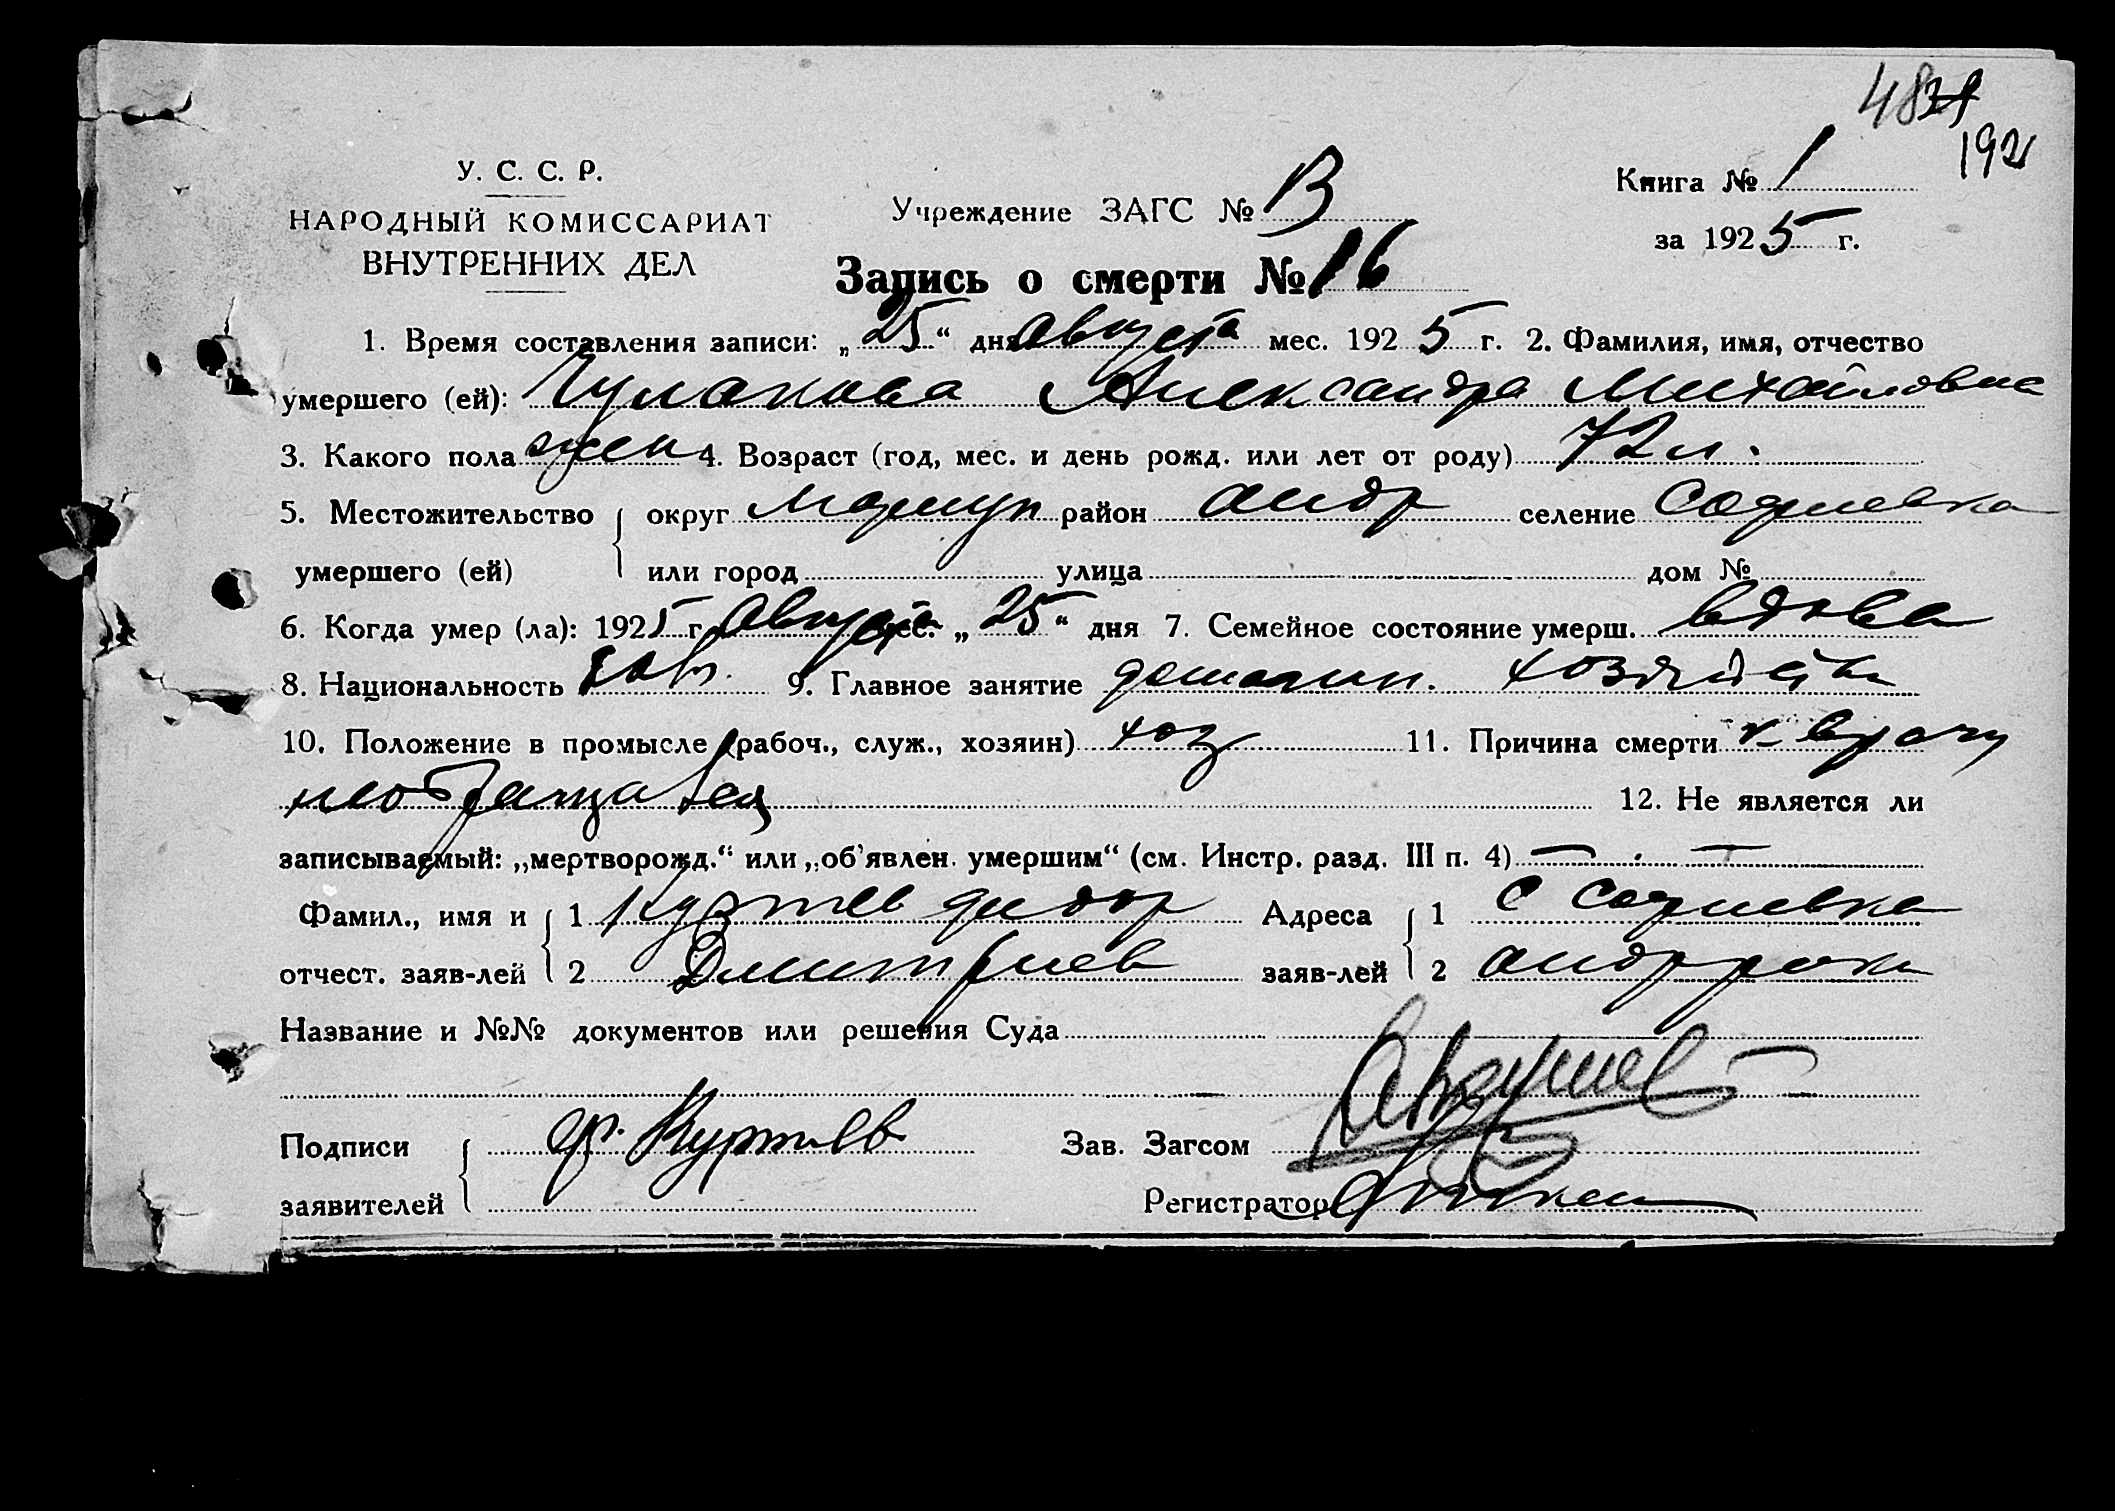 48
192
У. С. С. Р.
НАРОДНЫЙ КОМИССАРИАТ
ВНУТРЕННИХ ДЕЛ
Учреждение ЗАГС № В
Книга № 1
за 1925 г.
Запись о смерти № 16
1. Время составления записи: „25“ дня августа мес. 1925 г. 2. Фамилия, имя, отчество
умершего (ей): Чулакова Александра Михайловна
3. Какого пола жен 4. Возраст (год, мес. и день рожд. или лет от роду) 72 л.
5. Местожительство округ Мариуп район андр селение Софиевка
умершего (ей) или город улица дом №
6. Когда умер (ла): 1925 г. августа мес. „25“ дня 7. Семейное состояние умерш. вдова
8. Национальность 9. Главное занятие домашн. хозяйств
10. Положение в промысле (рабоч., служ., хозяин) хоз 11. Причина смерти к врачу
необращавсь 12. Не является ли
записываемый: „мертворожд.“ или „об'явлен. умершим“ (см. Инстр. разд. III п. 4) — . —
Фамил., имя и 1 Куртев Федор Адреса 1 с Софиевка
отчест. заяв-лей 2 Дмитриев заяв-лей 2 андр рона
Название и №№ документов или решения Суда
Подписи ф. Куртев Зав. Загсом
заявителей Регистратор